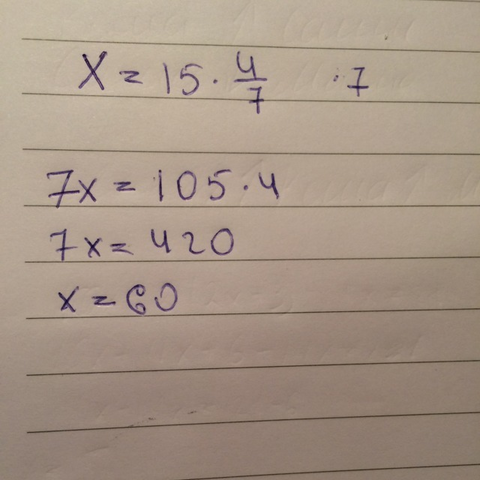 X = 15 · 4/7 · 7
7x = 105 · 4
7x = 420
x = 60